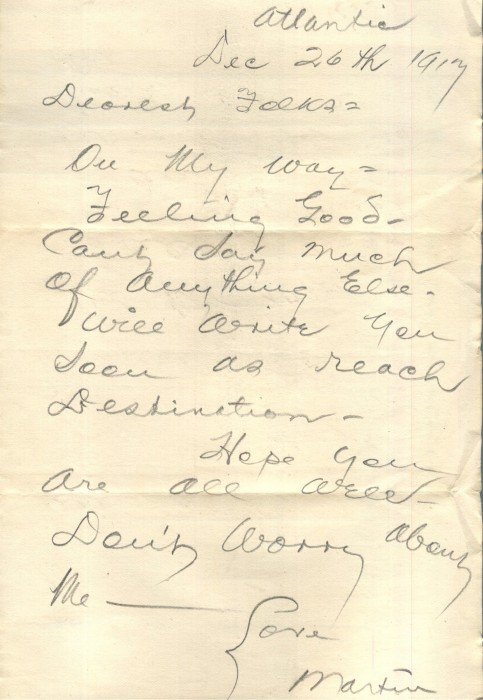 Atlantic
Dec 26th 1917
Dearest Folks=
On My Way=
Feeling Good-
Cant Say Much
Of Anything Else-
Will Write You
Soon as reach
Destination-
Hope You
Are all Well-
Don't Worry About
Me —
Love
Martin